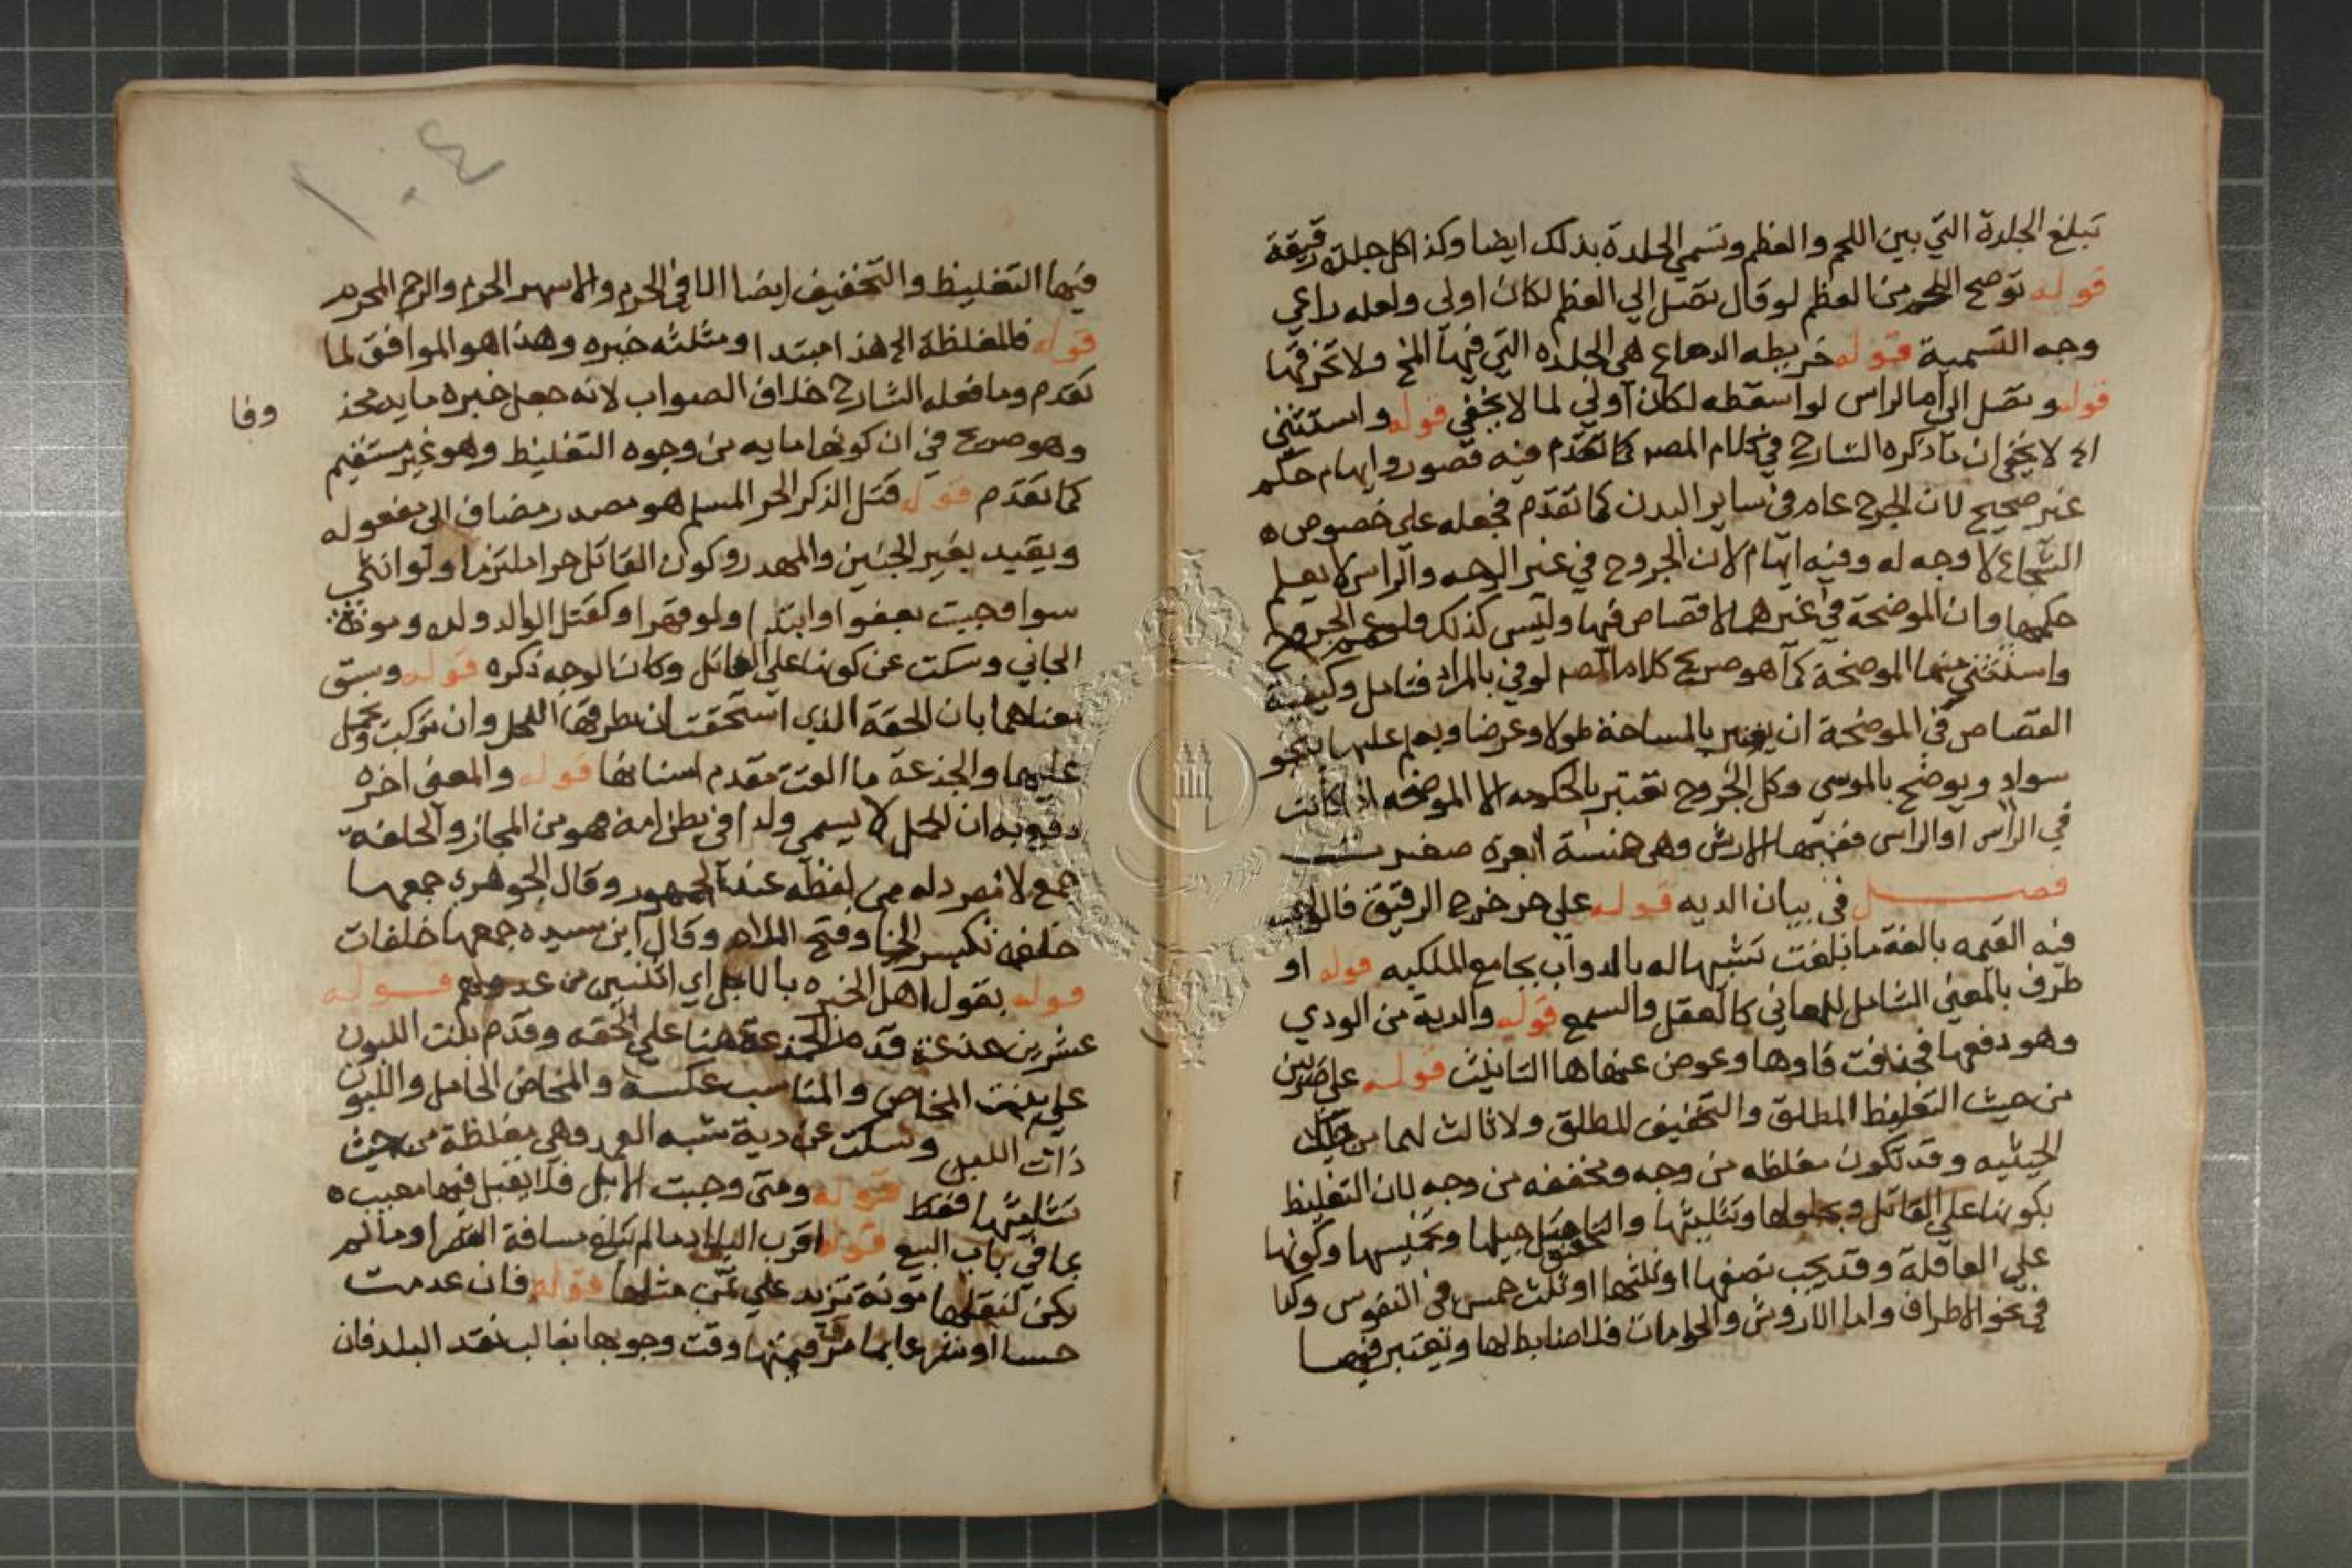 تبلغ الجلدة التي بين اللحم والعظم وتسمي الجلدة بذلك ايضا وكذا كل جلدة رقيقة
قوله توضح اللحم من العظم لو قال تصل الي العظم لكان اولى ولعله راعي
وجه التسمية قوله خريطه الدماغ هي الجلده التي فيها المخ ولا تخرقها
قوله وتصل الى ام الراس لو اسقطه لكان اولي لما لا يخفي قوله واستثني
اي لا يخفي ان ما ذكره الشارح في كلام المصه كما تقدم فيه قصور وايهام حكم
غير صحيح لان الجرح عام في ساير البدن كما تقدم فجعله على خصوص ه
الشجاج لا وجه له وفيه ايهام لان الجروح في غير الوجه والراس لا يعلم
حكمها وان الموضحة في غيرهما لا قصاص فيها وليس كذلك ولو عم الجروح
واستثني منها الموضحة كما هو صريح كلام المصه لوفي بالمراد فتامل وكيفية
القصاص في الموضحة ان يعتبر بالمساحة طولا وعرضا ويعلم عليها بنحو
سواد ويوضح بالموسى وكل الجروح تعتبر بالحكومه الا الموضحه اذا كانت
في الراس او الراس ففيها الارش وهي خمسة ابعرة
فصل في بيان الديه قوله على حر خرج الرقيق فالواجب
فيه القيمه بالغة ما بلغت تشبيها له بالدواب بجامع الملكيه قوله او
طرف بالمعني الشامل للمعاني كالعقل والسمع قوله والدية من الودي
وهو دفعها فحذفت فاوها وعوض عنها ها التانيث قوله على ضربين
من حيث التغليظ المطلق والتخفيف المطلق ولا ثالث لهما من تلك
الحيثيه وقد تكون مغلظه من وجه ومخففه من وجه لان التغليظ
بكونها على القاتل وبحلولها وتثليثها والتخفيف بتاجيلها وتخميسها وكونها
على العاقلة وقد يجب نصفها او ثلثها او ثلث خمس في النفوس وكذا
في نحو الاطراف واما الاروش والحكومات فلا ضابط لها ويعتبر فيها
١٠٤
فيها التغليظ والتخفيف ايضا الا في الحرم والاشهر الحرم والرحم المحرم
قوله فالمغلظة الخ هذا مبتدا ومثلثه خبره وهذا هو الموافق لما
تقدم وما فعله الشارح خلاف الصواب لانه جعل خبره مايه مخذ
وفا
وهو صريح في ان كونها مايه من وجوه التغليظ وهو غير مستقيم
كما تقدم قوله قتل الذكر الحر المسلم هو مصدر مضاف الى مفعوله
ويقيد بغير الجنين والمهدر وكون القاتل حرا ملتزما ولو انثي
سوا وجبت بعفو او ابتدا ولو قهرا وكقتل الوالد ولده وموت
الجاني وسكت عن كونها على القاتل وكان الوجه ذكره قوله وسبق
معناهما بان الحقة الذي استحقت ان يطرقها الفحل وان تركب ويحمل
عليها والجذعة ما القت مقدم اسنانها قوله والمعنى اخره
دفع به ان الحمل لا يسمى ولدا في بطن امه فهو من المجاز والخلفة
جمع لا مفرد له من لفظه عند الجمهور وقال الجوهري جمعها
خلفه بكسر الخا وفتح اللام وقال ابن سيده جمعها خلفات
قوله بقول اهل الخبره بالابل اي اثنين من عدولهم قوله
عشرين جذعة قدم الجذعة هنا على الحقه وقدم بنت اللبون
على بنت المخاض والمناسب عكسه والمخاض الحامل واللبون
ذات اللبن وسكت عن دية شبه العمد وهي مغلظة من حيث
تثليثها فقط قوله ومتى وجبت الابل فلا يقبل فيها معيب ه
بما في باب البيع قوله اقرب البلاد ما لم تبلغ مسافة القصر او ما لم
يكن لنقلها مونة تزيد على ثمن مثلها قوله فان عدمت
حسا او شرعا بما مر قيمتها وقت وجوبها بغالب نقد البلد فان